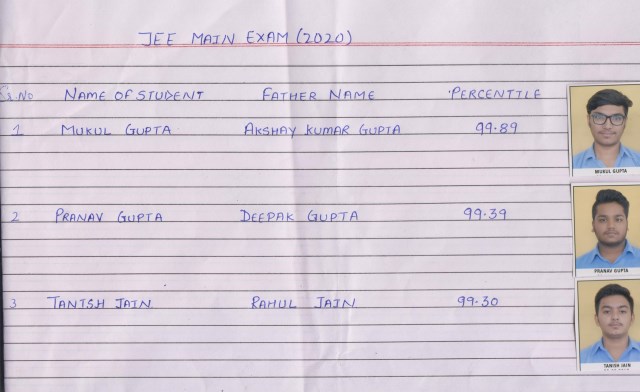 JEE MAIN EXAM (2020)
S.No NAME OF STUDENT FATHER NAME PERCENTILE
1 MUKUL GUPTA AKSHAY KUMAR GUPTA 99.89
MUKUL GUPTA
2 PRANAV GUPTA DEEPAK GUPTA 99.39
PRANAV GUPTA
3 TANISH JAIN RAHUL JAIN 99.30
TANISH JAIN